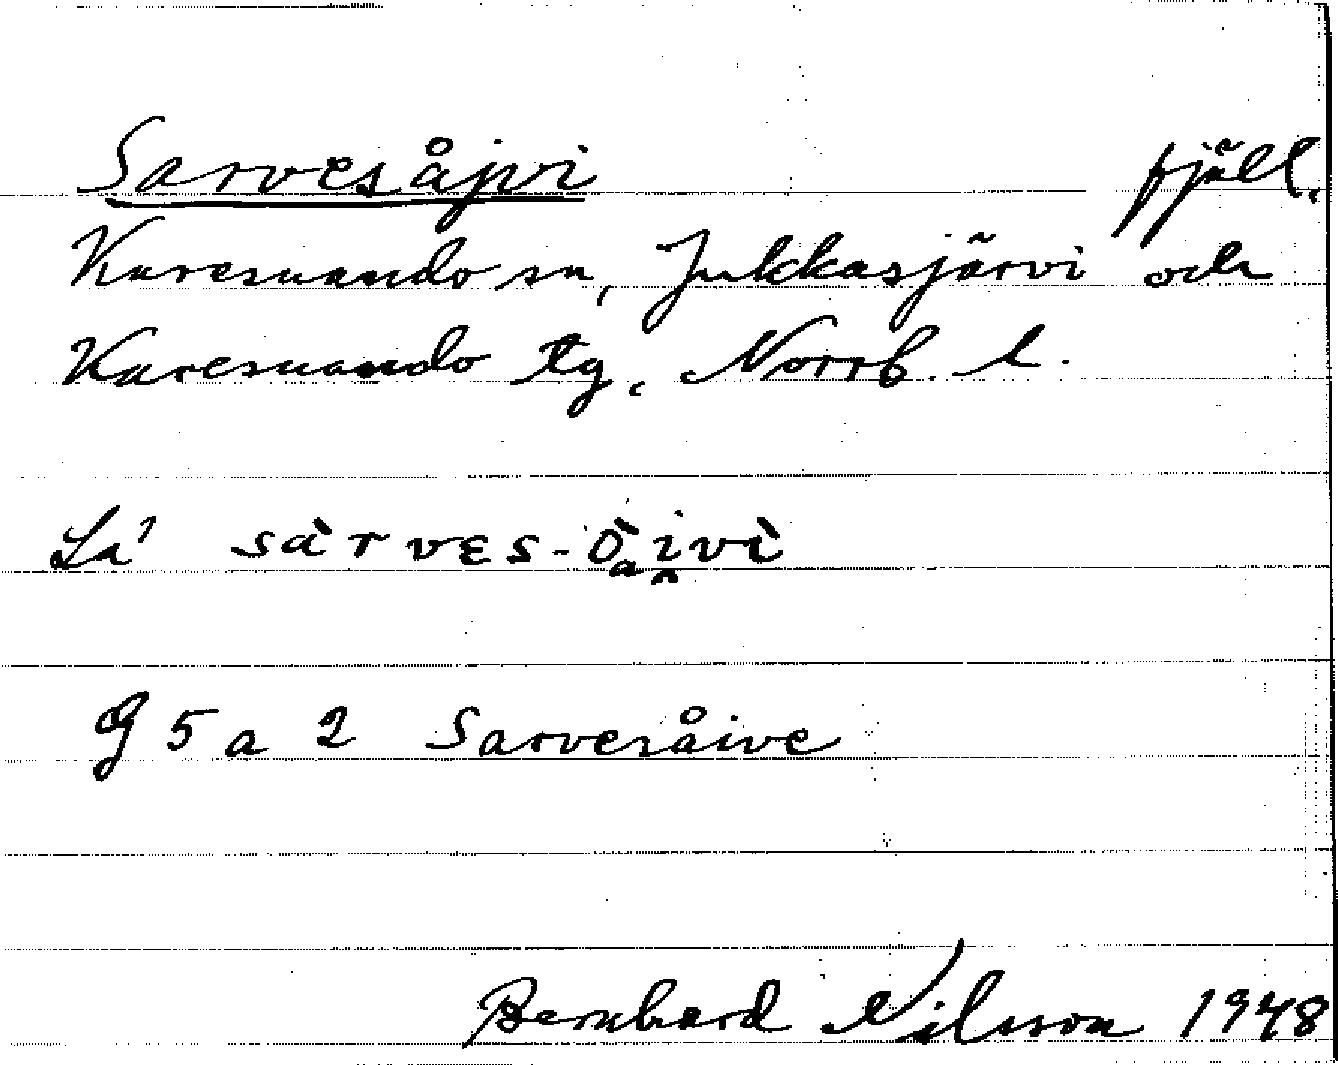 Sarvesåjvi fjäll.
Karesuando sn, Jukkasjärvi och
Karesuando tg. Norrb. l.
La' sàrvɛs-òa̭i̯vì
G 5 a 2 Sarvesåive
Bernhard Nilsson 1948